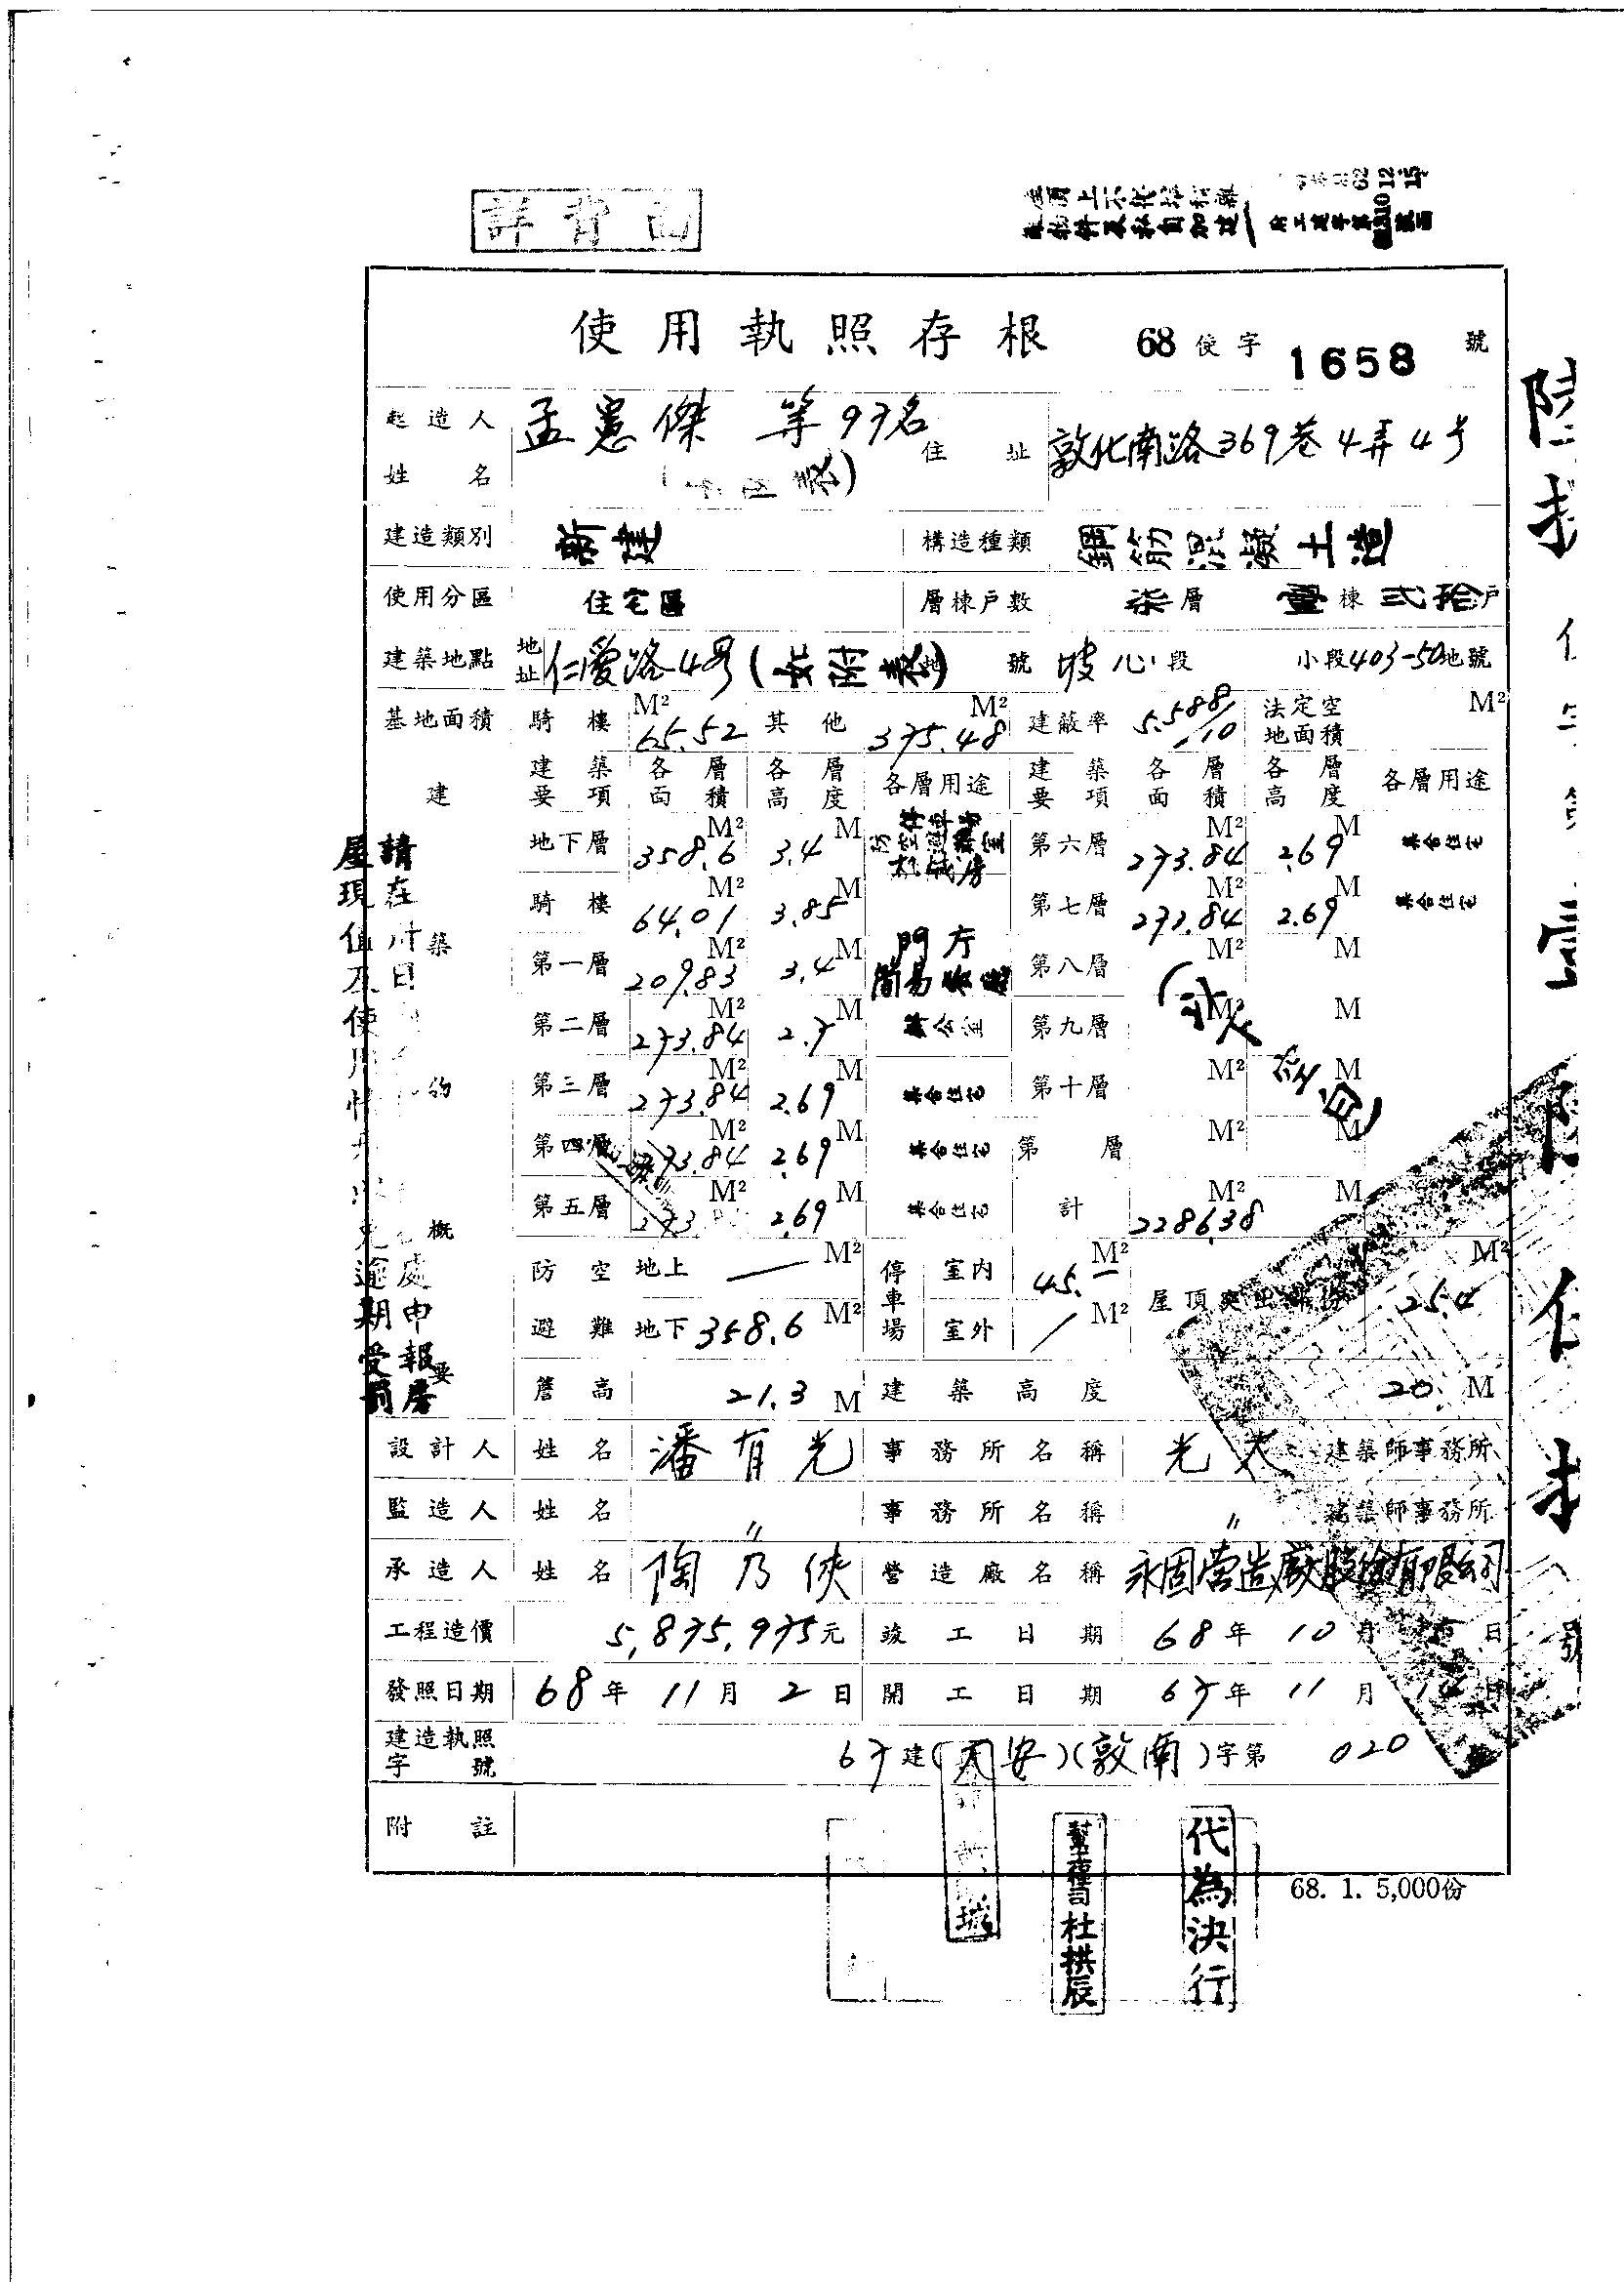 詳背面
使用執照存根 68 使字 1658 號
起造人姓名 孟憲傑 等97名 住址 敦化南路369巷4弄4号
建造類別 新建 構造種類 鋼筋混凝土造
使用分區 住宅區 層棟戶數 柒層 壹棟 弍拾戶
建築地點 地址 仁愛路4段 地號 坡心段 小段403-50地號
基地面積 騎樓 65.52 M² 其他 375.48 M² 建蔽率 5.588/10 法定空地面積 M²
建築要項 各層面積 各層高度 各層用途 建築要項 各層面積 各層高度 各層用途
地下層 358.6 M² 3.4 M 第六層 273.84 M² 2.69 M 集合住宅
騎樓 64.01 M² 3.85 M 第七層 272.84 M² 2.69 M 集合住宅
第一層 209.83 M² 3.4 M 門庁 第八層 M² M
第二層 273.84 M² 2.7 M 第九層 M² M
第三層 273.84 M² 2.69 M 集合住宅 第十層 M² M
第四層 273.84 M² 2.69 M 集合住宅 第 層 M² M
第五層 M² 2.69 M 集合住宅 計 2286.38 M² M
防空避難 地上 — M² 停車場 室內 45.— M² 屋頂突出部份 25.4 M²
地下 358.6 M² 室外 / M²
簷高 21.3 M 建築高度 20. M
設計人 姓名 潘有光 事務所名稱 光大 建築師事務所
監造人 姓名 〃 事務所名稱 〃 建築師事務所
承造人 姓名 陶乃俠 營造廠名稱 永固営造廠股份有限公司
工程造價 5,875,975元 竣工日期 68年10月 日
發照日期 68年11月2日 開工日期 67年11月 日
建造執照字號 67建(大安)(敦南)字第 020
附註
68. 1. 5,000份
代為決行
幫工程司 杜拱辰